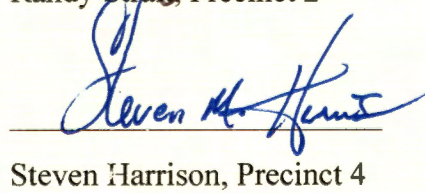 Precinct 2
Steven M. Harris
Steven Harrison, Precinct 4